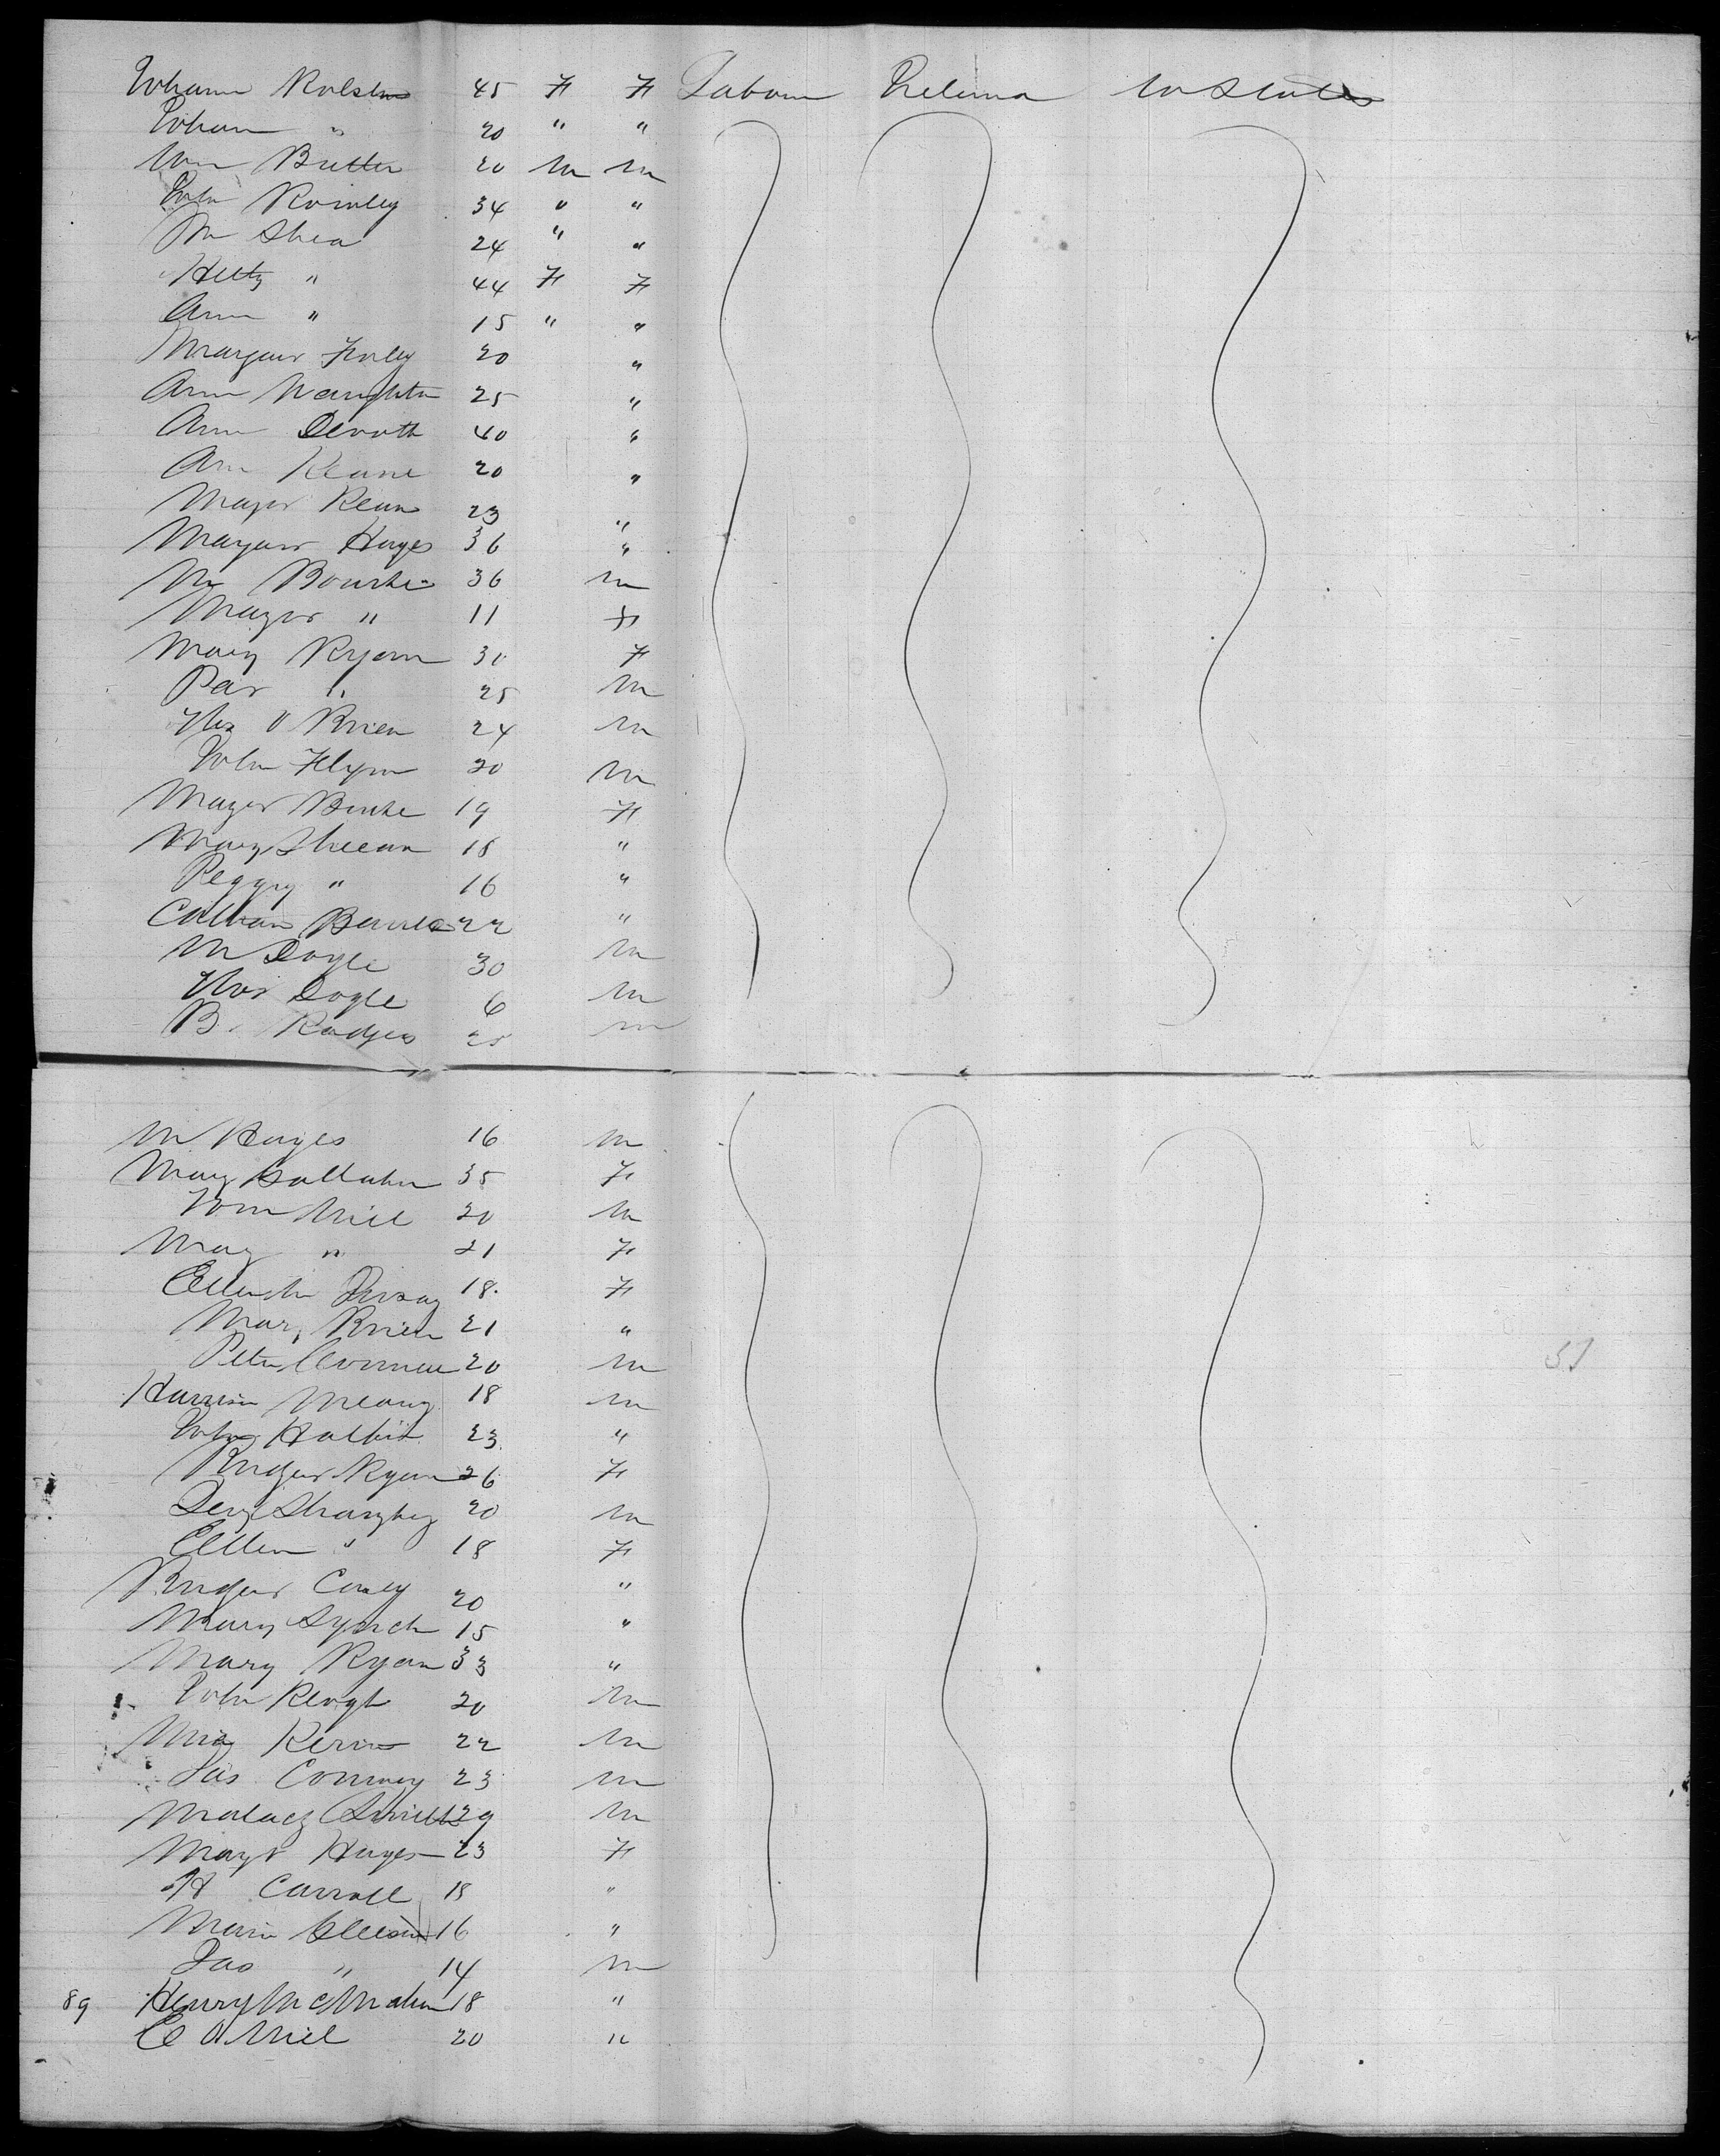 Johanna Ralston 45 F F Labour Ireland U States
Johan " 20 " "
Wm Butter 20 M M
John Romley 34 " "
Wm Shea 24 " "
Hetty " 44 F F
Ann " 15 " "
Margaret Foley 20 "
Ann Naughton 25 "
Ann Devott 40 "
Ann Keane 20 "
Margr Kean 23 "
Margaret Hayes 36 "
Wm Bourke 36 M
Margr " 11 F
Mary Ryan 30 F
Pat " 25 M
Thos O Brien 24 M
John Flynn 20 M
Margr Burke 19 F
Mary Sheean 18 "
Peggy " 16 "
22 "
M Doyle 30 M
Thos Doyle 6 M
B. Rodgers 25 M
M Hayes 16 M
Mary Gallaher 35 F
Tom Niel 20 M
Mary " 21 F
Ellen 18 F
Mary Brien 21 "
Peter Connell 20 M
18 M
John 23 "
Bridget Ryan 26 F
20 M
Ellen " 18 F
Bridget Conly 20 "
Mary Lynch 15 "
Mary Ryan 33 "
John Keogh 20 M
22 M
Jas Conway 23 M
Malacy Smith 29 M
Margt Hayes 23 F
H Carroll 18 "
Maria Gleeson 16 "
Jas " 14 M
89 Henry McMahon 18 "
C O Niel 20 "
51